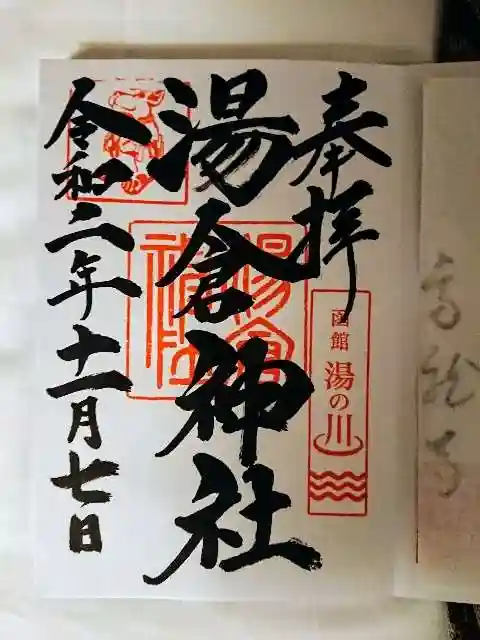 奉拝
函館
湯の川
湯倉神社
湯倉
神社
令和二年十一月七日